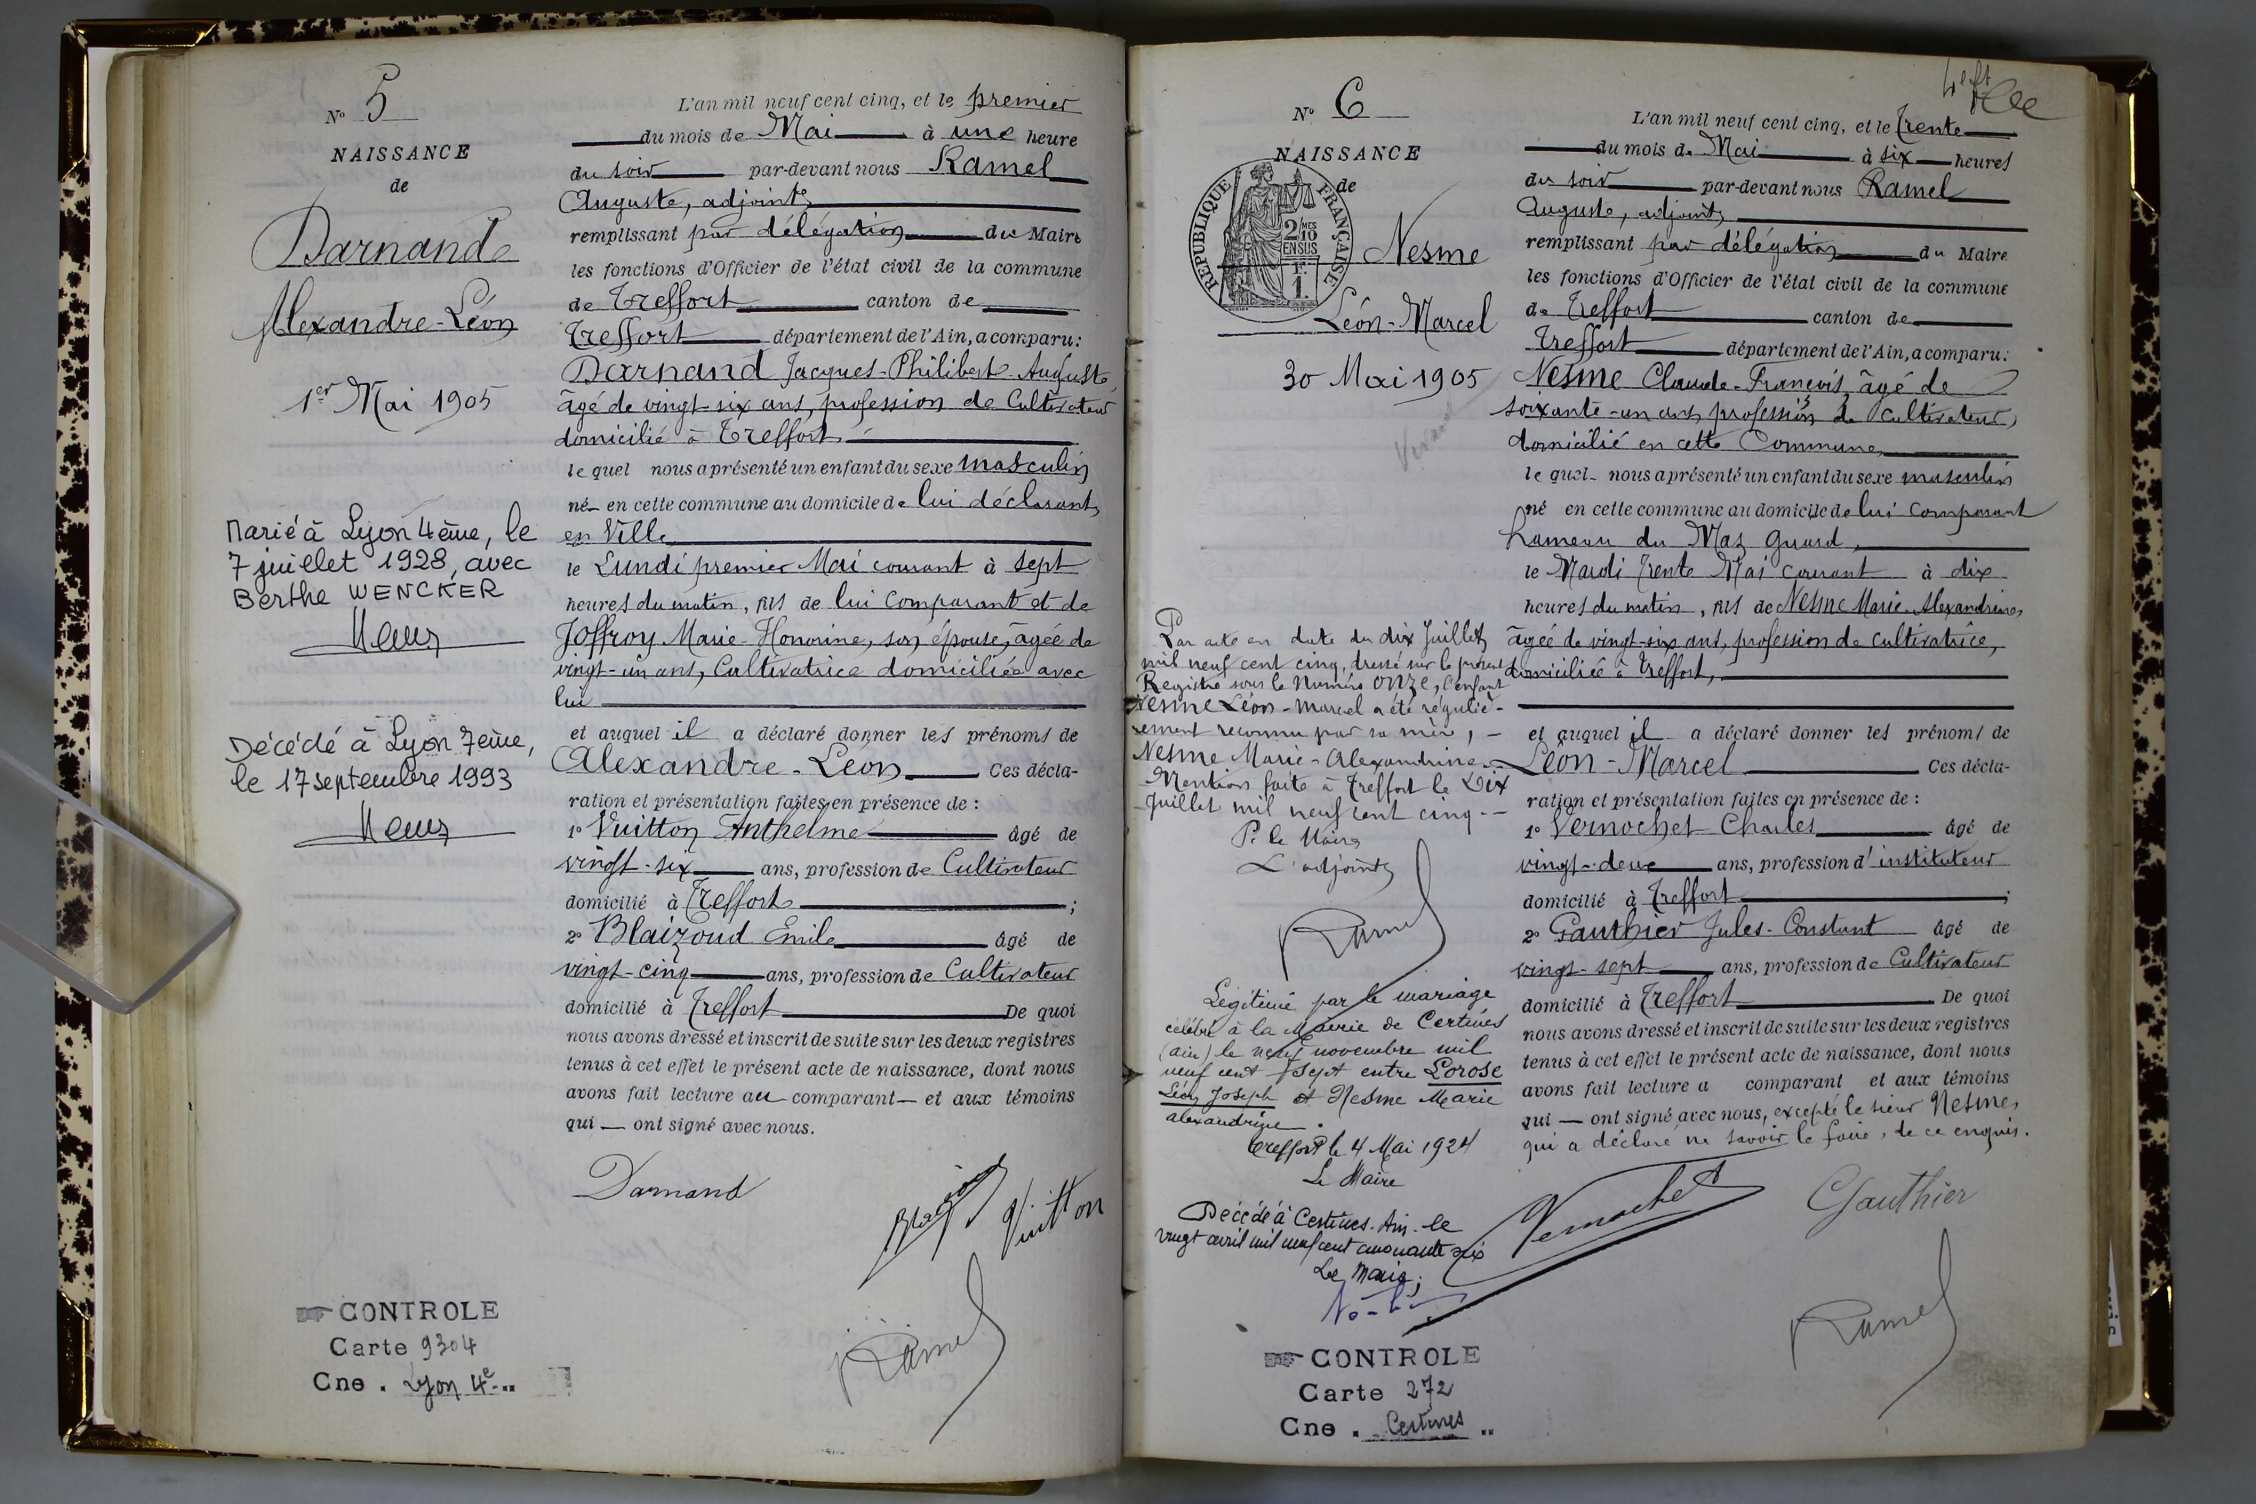 N° 5
NAISSANCE
de
Darnand
Alexandre-Léon
1er Mai 1905
Marié à Lyon 4ème, le
7 juillet 1928, avec
Berthe WENCKER
Décédé à Lyon 7ème,
le 17 septembre 1993
CONTROLE
Carte 9304
Cne. Lyon 4e
L'an mil neuf cent cinq, et le premier
du mois de Mai à une heure
du soir par-devant nous Ramel
Auguste, adjoint,
remplissant par délégation du Maire
les fonctions d'Officier de l'état civil de la commune
de Treffort canton de
Treffort département de l'Ain, a comparu:
Darnand Jacques-Philibert-Auguste,
âgé de vingt-six ans, profession de Cultivateur
domicilié à Treffort
lequel nous a présenté un enfant du sexe masculin
né en cette commune au domicile de lui déclarant,
en Ville
le Lundi premier Mai courant à sept
heures du matin, fils de lui comparant et de
Joffroy Marie-Honorine, son épouse, âgée de
vingt-un ans, Cultivatrice domiciliée avec
lui
et auquel il a déclaré donner les prénoms de
Alexandre-Léon Ces décla-
ration et présentation faites en présence de :
1° Vuitton Anthelme âgé de
vingt-six ans, profession de Cultivateur
domicilié à Treffort ;
2° Blaizoud Emile âgé de
vingt-cinq ans, profession de Cultivateur
domicilié à Treffort De quoi
nous avons dressé et inscrit de suite sur les deux registres
tenus à cet effet le présent acte de naissance, dont nous
avons fait lecture au comparant et aux témoins
qui ont signé avec nous.
Darnand
Blaizoud
Vuitton
Ramel
N° 6
NAISSANCE
de
REPUBLIQUE FRANÇAISE
2/10MES
EN SUS
1F.
1.
Nesme
Léon-Marcel
30 Mai 1905
Par acte en date du dix Juillet
mil neuf cent cinq, dressé sur le présent
Registre sous le Numéro onze, l'enfant
Nesme Léon-Marcel a été réguliè-
rement reconnu par sa mère,
Nesme Marie-Alexandrine.
Mention faite à Treffort le Dix
Juillet mil neuf cent cinq.
P. le Maire
L'adjoint,
Ramel
Légitimé par le mariage
célébré à la Mairie de Certines
(Ain) le neuf novembre mil
neuf cent sept entre Lorose
Léon Joseph et Nesme Marie
alexandrine.
Treffort le 4 Mai 1924
Le Maire
Décédé à Certines. Ain. le
vingt avril mil neuf cent cinquante six
Le Maire,
CONTROLE
Carte 272
Cne. Certines
L'an mil neuf cent cinq, et le Trente
du mois de Mai à six heures
du soir par-devant nous Ramel
Auguste, adjoint,
remplissant par délégation du Maire
les fonctions d'Officier de l'état civil de la commune
de Treffort canton de
Treffort département de l'Ain, a comparu:
Nesme Claude-François, âgé de
soixante-un ans, profession de cultivateur,
domicilié en cette Commune,
lequel nous a présenté un enfant du sexe masculin
né en cette commune au domicile de lui comparant
hameau du Maz guard,
le Mardi Trente Mai courant à dix
heures du matin, fils de Nesme Marie-Alexandrine,
âgée de vingt-six ans, profession de cultivatrice,
domiciliée à Treffort,
et auquel il a déclaré donner les prénoms de
Léon-Marcel Ces décla-
ration et présentation faites en présence de :
1° Vernochet Charles âgé de
vingt-deux ans, profession d'instituteur
domicilié à Treffort ;
2° Gauthier Jules-Constant âgé de
vingt-sept ans, profession de Cultivateur
domicilié à Treffort De quoi
nous avons dressé et inscrit de suite sur les deux registres
tenus à cet effet le présent acte de naissance, dont nous
avons fait lecture a comparant et aux témoins
qui ont signé avec nous, excepté le sieur Nesme,
qui a déclaré ne savoir le faire, de ce enquis.
Vernochet
Gauthier
Ramel